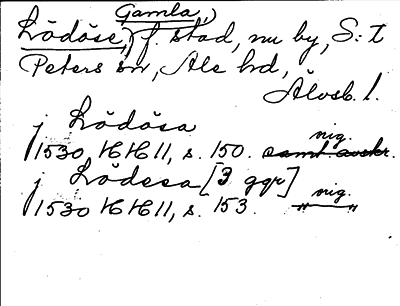 Gamla,
Lödöse, f. stad, nu by, S:t
Peters sn, Ale hd,
Älvsb. l.
j Lödösa
nig.
1530 HH 11, s. 150. samt avskr.
j Lödesa [3 ggr]
nig.
1530 HH 11, s. 153. — " — "